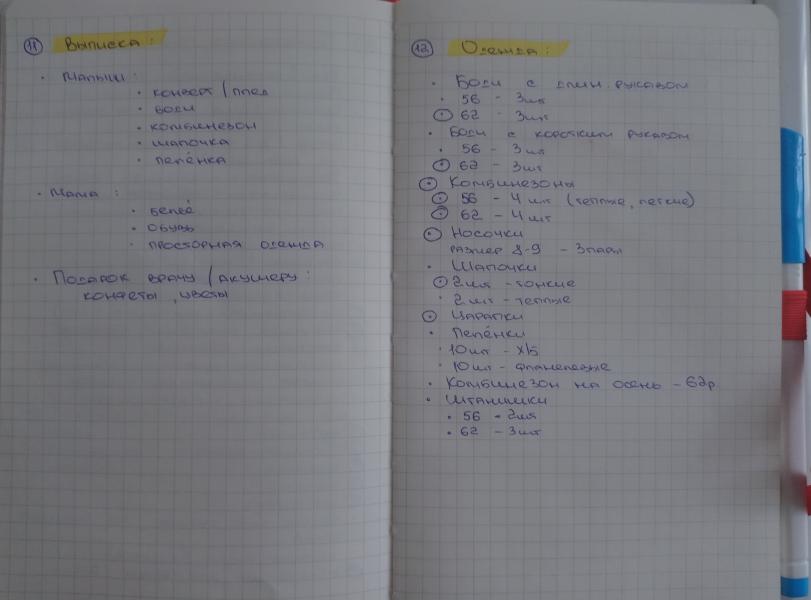 11 Выписка:
• Малыш:
• конверт / плед
• боди
• комбинезон
• шапочка
• пелёнка
• Мама:
• бельё
• обувь
• просторная одежда
• Подарок врачу / акушеру:
конфеты, цветы
12 Одежда:
• Боди с длин. рукавом
• 56 - 3шт
• 62 - 3шт
• Боди с коротким рукавом
• 56 - 3шт
• 62 - 3шт
• Комбинезоны
• 56 - 4шт (теплые, легкие)
• 62 - 4шт
• Носочки
размер 8-9 - 3пары
• Шапочки
• 2шт - тонкие
• 2шт - теплые
• Царапки
• Пелёнки
• 10шт - х/б
• 10шт - фланелевые
• Комбинезон на осень - 62р.
• Штанишки
• 56 - 2шт
• 62 - 3шт